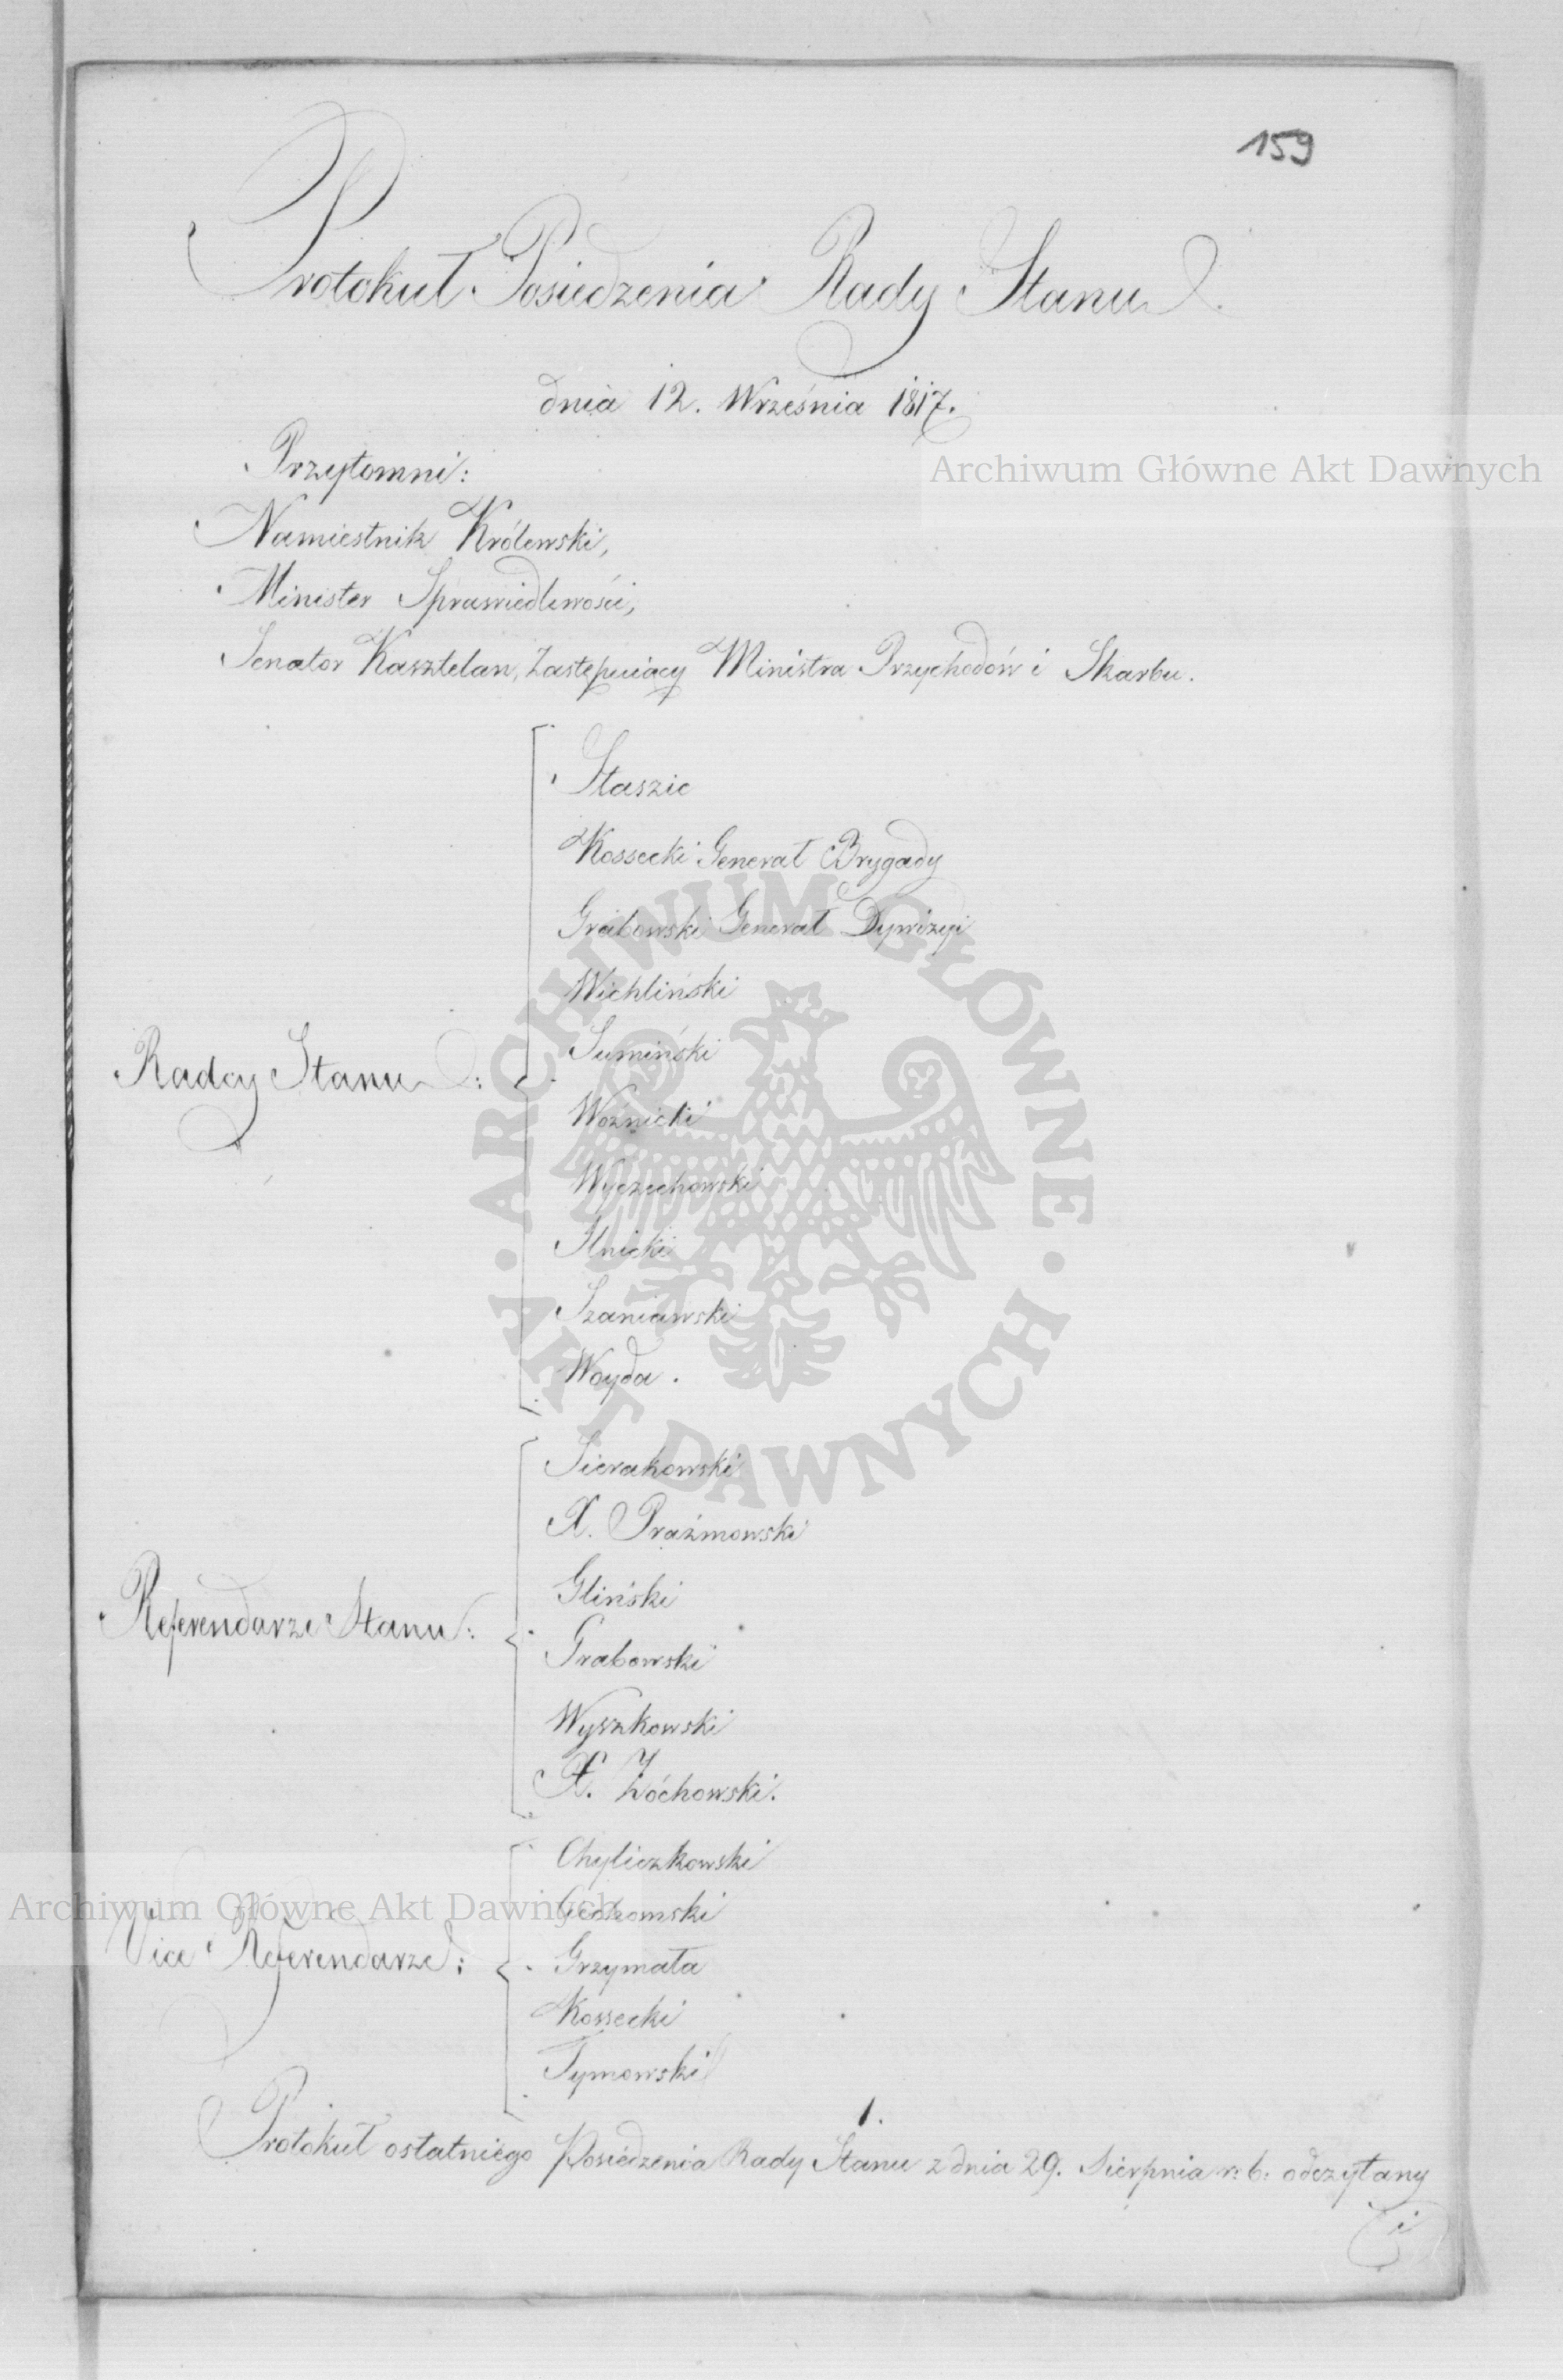 159
Protokuł Posiedzenia Rady Stanu
dnia 12. Września 1817.
Archiwum Główne Akt Dawnych
Przytomni:
Namiestnik Królewski,
Minister Sprawiedliwości,
Senator Kasztelan, Zastępuiący Ministra Przychodów i Skarbu.
Radcy Stanu:
Staszic
Kossecki Generał Brygady
Grabowski Generał Dywizyi
Wichliński
Sumiński
Woźnicki
Wyczechowski
Ilnicki
Szaniawski
Woyda.
ARCHIWUM GŁÓWNE AKT DAWNYCH
Referendarze Stanu:
Sierakowski
X. Prażmowski
Gliński
Grabowski
Wyszkowski
X. Żóchowski.
Vice Referendarze:
Chyliczkowski
Archiwum Główne Akt Dawnych
Grzymała
Kossecki
Tymowski
1.
Protokuł ostatniego Posiedzenia Rady Stanu z dnia 29. Sierpnia r: b: odczytany
i